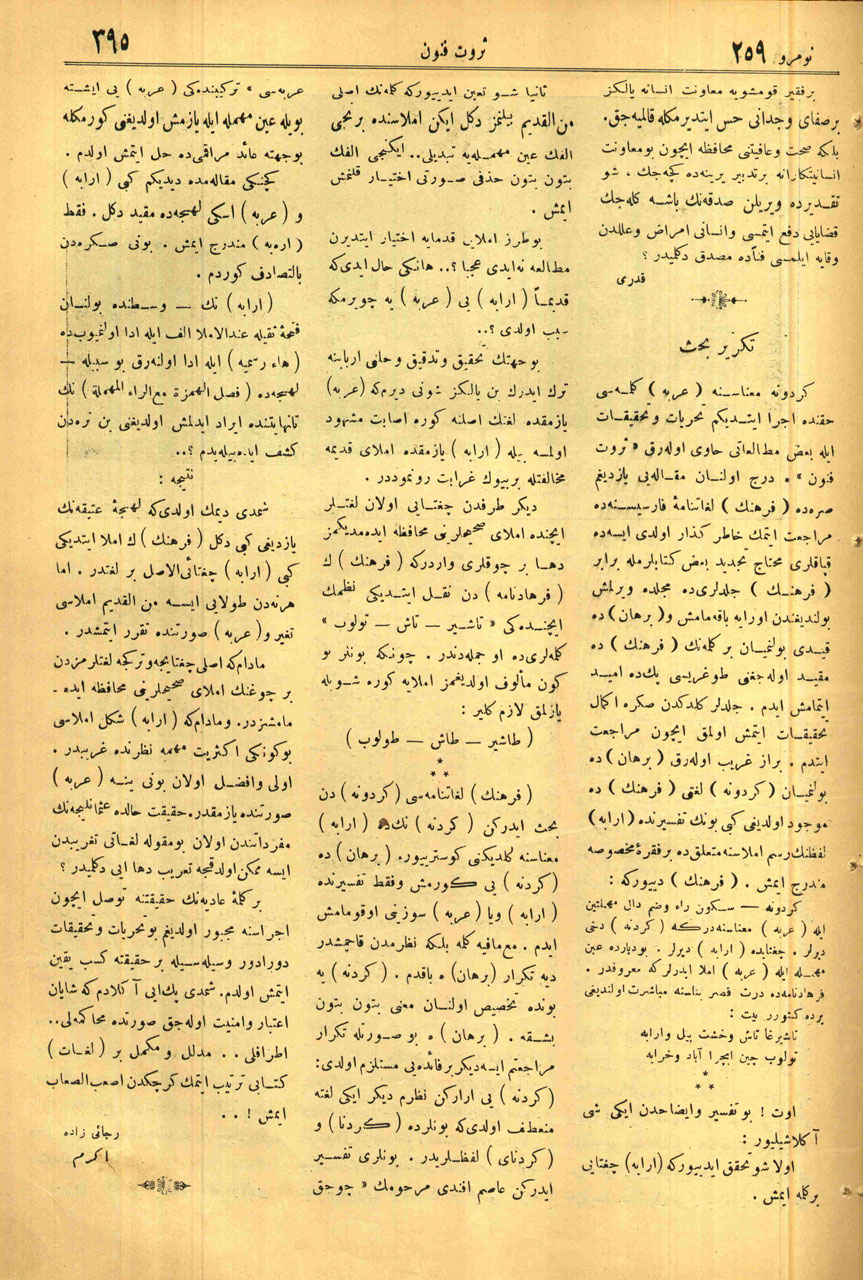 نومرو ٢٥٩
ثروت فنون
٣٩٥
برفقير قومشويه معاونت انسانه يالكز
برصفای وجدانی حس ايتديرمكله قالميه جق.
بلكه صحت وعافيتنی محافظه ايچون بومعاونت
انسانيتكارانه برتدبير يرينه ده كچه جك ، شو
تقديرده ويريلن صدقه نك باشه كله جك
قضايایی دفع ايتمسی وانسانی امراض وعللدن
وقايه ايلمسی فناً ده مصدق دكلميدر ؟
قدری
تكرير بحث
كردونه معناسنه ( عربه ) كلمه سی
حقنده اجرا ايتديكم تحريات وتحقيقات
ايله بعض مطالعاتی حاوی اوله رق « ثروت
فنون » ه درج اولنان مقاله یی يازديغم
صره ده ( فرهنك ) لغاتنامهٔ فارسيسنه ده
مراجعت ايتمك خاطر كذار اولدی ايسه ده
قپاقلری محتاج تجديد بعض كتابلرمله برابر
( فرهنك ) جلدلری ده مجلده ويرلمش
بولنديغندن اورايه باقه مامش و( برهان ) ده
قيدی بولنميان بر كلمه نك ( فرهنك ) ده
مقيد اوله جغنی طوغريسی پك ده اميد
ايتمامش ايدم . جلدلر كلدكدن صكره اكمال
تحقيقات ايتمش اولمق ايچون مراجعت
ايتدم . براز غريب اوله رق ( برهان ) ده
بولنميان ( كردونه ) لغتی ( فرهنك ) ده
موجود اولديغی كبی بونك تفسيرنده ( ارابه )
لفظنك رسم املاسنه متعلق ده برفقرهٔ مخصوصه
مندرج ايمش . ( فرهنك ) دييوركه :
كردونه — سكون راء وضم دال مهملتين
ايله ( عربه ) معناسنه دركه ( كردنه ) دخی
ديرلر . چغتايده ( ارابه ) ديرلر . بوديارده عين
مهمله ايله ( عربه ) املا ايدرلر كه معروفدر .
فرهادنامه ده درت قصر بناسنه مباشرت اولنديغی
يرده كتورر بيت :
تاشيرغا تاش وخشت بيل وارابه
تولوب چين ايچرا آباد وخرابه
*
* *
اوت ! بوتفسير وايضاحدن ايكی شی
آكلاشيليور :
اولا شو تحقق ايدييوركه ( ارابه ) چغتايی
بركله ايمش .
ثانيا شو تعين ايدييوركه كلمه نك اصلی
من القديم بيلنمز دكل ايكن املاسنده برنجی
الفك عين مهمله يه تبديلی .. ايكنجی الفك
بتون بتون حذفی صورتی اختيار قلنمش
ايمش .
بوطرز املایی قدمايه اختيار ايتديرن
مطالعه نه ايدی عجبا ؟ .. هانكی حال ايدی كه
قديماً ( ارابه ) یی ( عربه ) يه چويرمكه
سبب اولدی ؟ ..
بوجهتك تحقيق وتدقيق وحلنی اربابنه
ترك ايدرك بن يالكز شونی ديرم كه ( عربه )
يازمقده لغتك اصلنه كوره اصابت مشهود
اولمسه بيله ( ارابه ) يازمقده املای قديمه
مخالفتله بربيوك غرابت رونموددر .
ديكر طرفدن چغتایی اولان لغتلر
ايچنده املای صحيحلرينی محافظه ايده مديكمز
دها بر چوقلری واردركه ( فرهنك ) ك
( فرهادنامه ) دن نقل ايتديكی نظمك
ايچنده كی « تاشير — تاش — تولوب »
كلمه لری ده او جمله دندر . چونكه بونلر بو
كون مألوف اولديغمز املايه كوره شويله
يازلمق لازم كلير :
( طاشير — طاش — طولوب )
*
* *
( فرهنك ) لغاتنامه سی ( كردونه ) دن
بحث ايدركن ( كردنه ) نك ده ( ارابه )
معناسنه كلديكنی كوسترييور . ( برهان ) ده
( كردنه ) یی كورمش وفقط تفسيرنده
( ارابه ) ويا ( عربه ) سوزينی اوقومامش
ايدم . مع مافيه كلمه بلكه نظرمدن قاچمشدر
ديه تكرار ( برهان ) ه باقدم . ( كردنه ) يه
بونده تخصيص اولنان معنی بتون بتون
بشقه . ( برهان ) ه بو صورتله تكرار
مراجعتم ايسه ديكر برفائده یی مستلزم اولدی :
( كردنه ) یی اراركن نظرم ديكر ايكی لغته
منعطف اولدی كه بونلرده ( كردنا ) و
( كردنای ) لفظلريدر . بونلری تفسير
ايدركن عاصم افندی مرحومك « چوجق
عربه سی » تركيبنده كی ( عربه ) یی ايشته
بويله عين مهمله ايله يازمش اولديغنی كورمكله
بوجهته عائد مراقمی ده حل ايتمش اولدم .
كچنكی مقاله مده ديديكم كبی ( ارابه )
و ( عربه ) اسكی لهجه ده مقيد دكل . فقط
( اره به ) مندرج ايمش . بونی صكره دن
بالتصادف كوردم .
( ارابه ) نك — وسطنده بولنان
فتحهٔ ثقيله عندالاملا الف ايله ادا اولنميوب ده
( هاء رسميه ) ايله ادا اولنه رق بو سبيله —
لهجه ده ( فصل الهمزة مع الراء المهملة ) نك
تانهايتنده ايراد ايدلمش اولديغنی بن نره دن
كشف ايده بيله يدم ؟ ..
نتيجه :
شمدی ديمك اولدی كه لهجهٔ عتيقه نك
يازديغی كبی دكل ( فرهنك ) ك املا ايتديكی
كبی ( ارابه ) چغتائی الاصل بر لغتدر . اما
هر نه دن طولایی ايسه من القديم املاسی
تغير و ( عربه ) صورتنده تقرر ايتمشدر .
مادام كه اصلی چغتايجه وتركجه لغتلرمزدن
بر چوغنك املای صحيحلرينی محافظه ايده -
مامشزدر . ومادام كه ( ارابه ) شكل املاسی
بوكونكی اكثريت مهمه نظرنده غريبدر .
اولی وافضل اولان بونی ينه ( عربه )
صورتنده يازمقدر . حقيقت حالده عثمانليجه نك
مفرداتندن اولان بومقوله لغاتی تغريبدن
ايسه ممكن اولدقچه تعريب دها ایی دكلميدر ؟
بركلمهٔ عاديه نك حقيقتنه توصل ايچون
اجراسنه مجبور اولديغم بوتحريات وتحقيقات
دورادور وسيله سيله بر حقيقته كسب يقين
ايتمش اولدم . شمدی پك ایی آكلادم كه شايان
اعتبار وامنيت اوله جق صورتده محاكمه لی ..
اطرافلی .. مدلل و مكمل بر ( لغات )
كتابی ترتيب ايتمك كرچكدن اصعب الصعاب
ايمش ! . .
رجائی زاده
اكرم